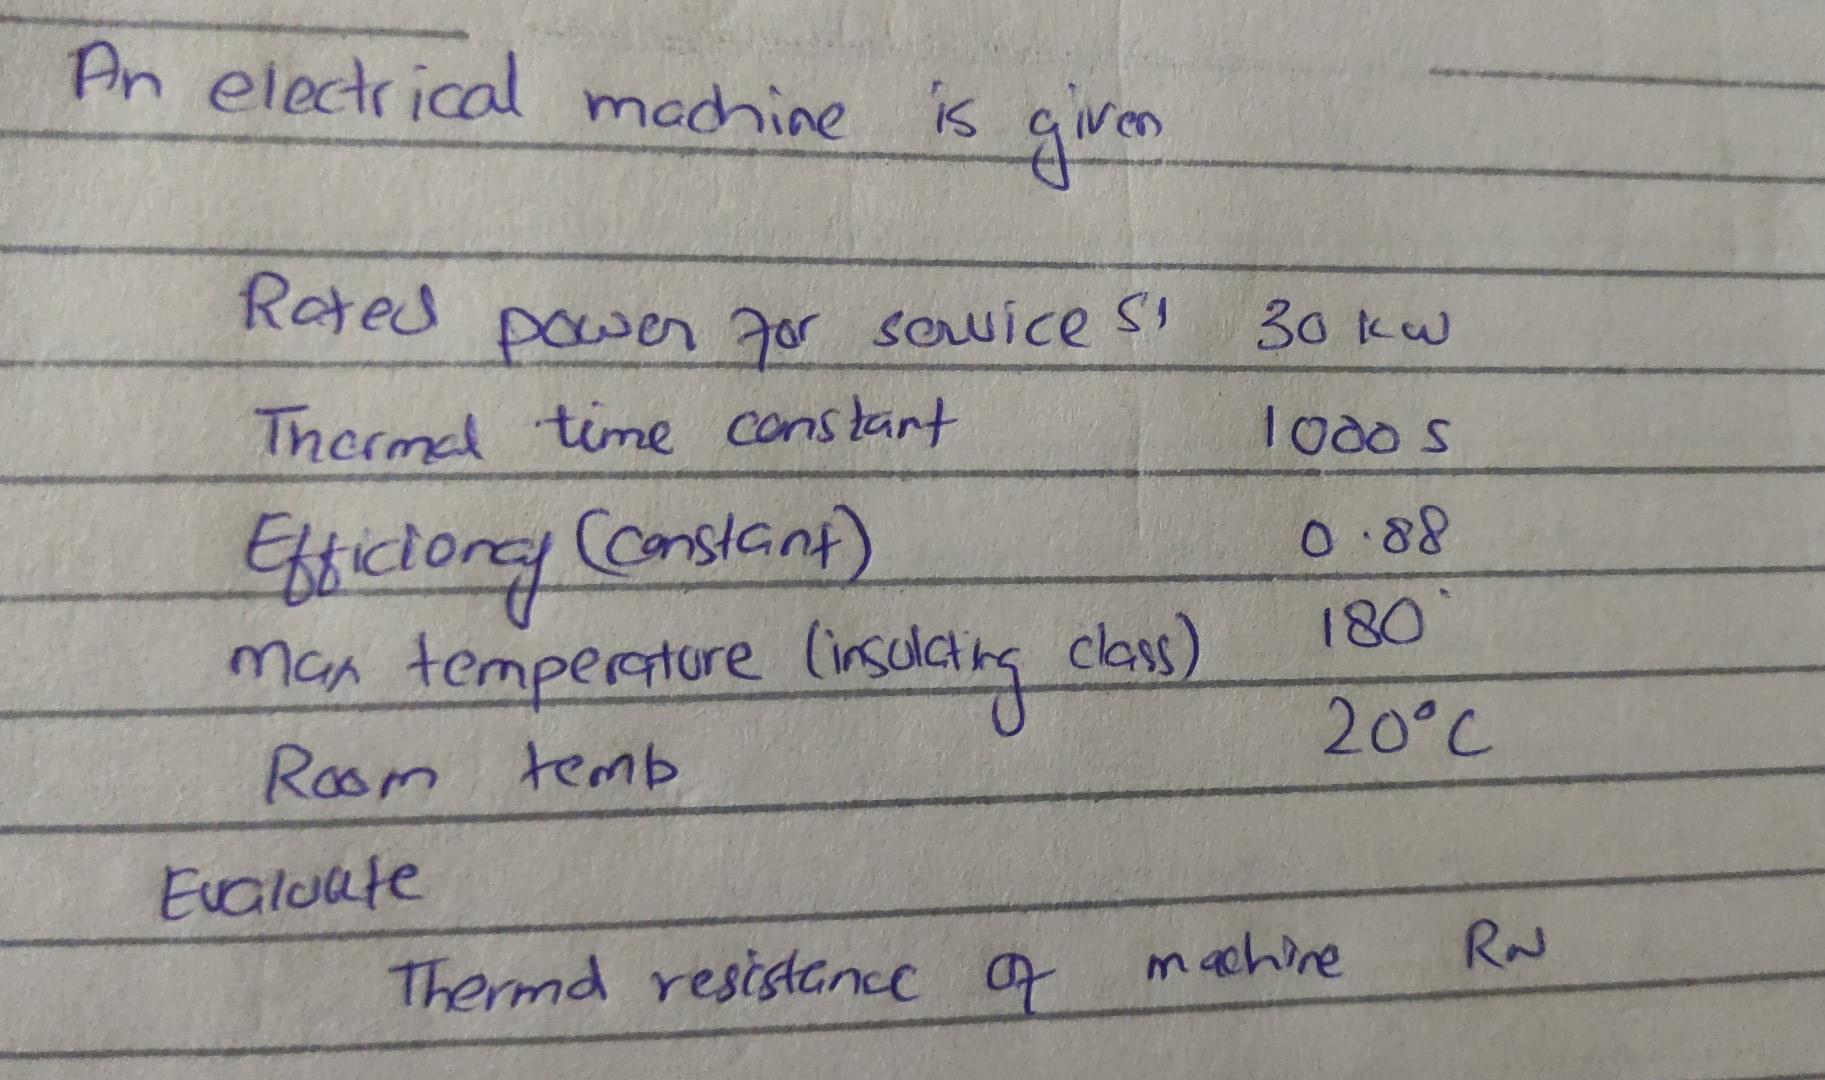 An electrical machine is given
Rated power for service S1 30 kw
Thermal time constant 1000 s
Efficiency (constant) 0.88
max temperature (insulating class) 180°
Room temb 20°C
Evaluate
Thermal resistance of machine RN